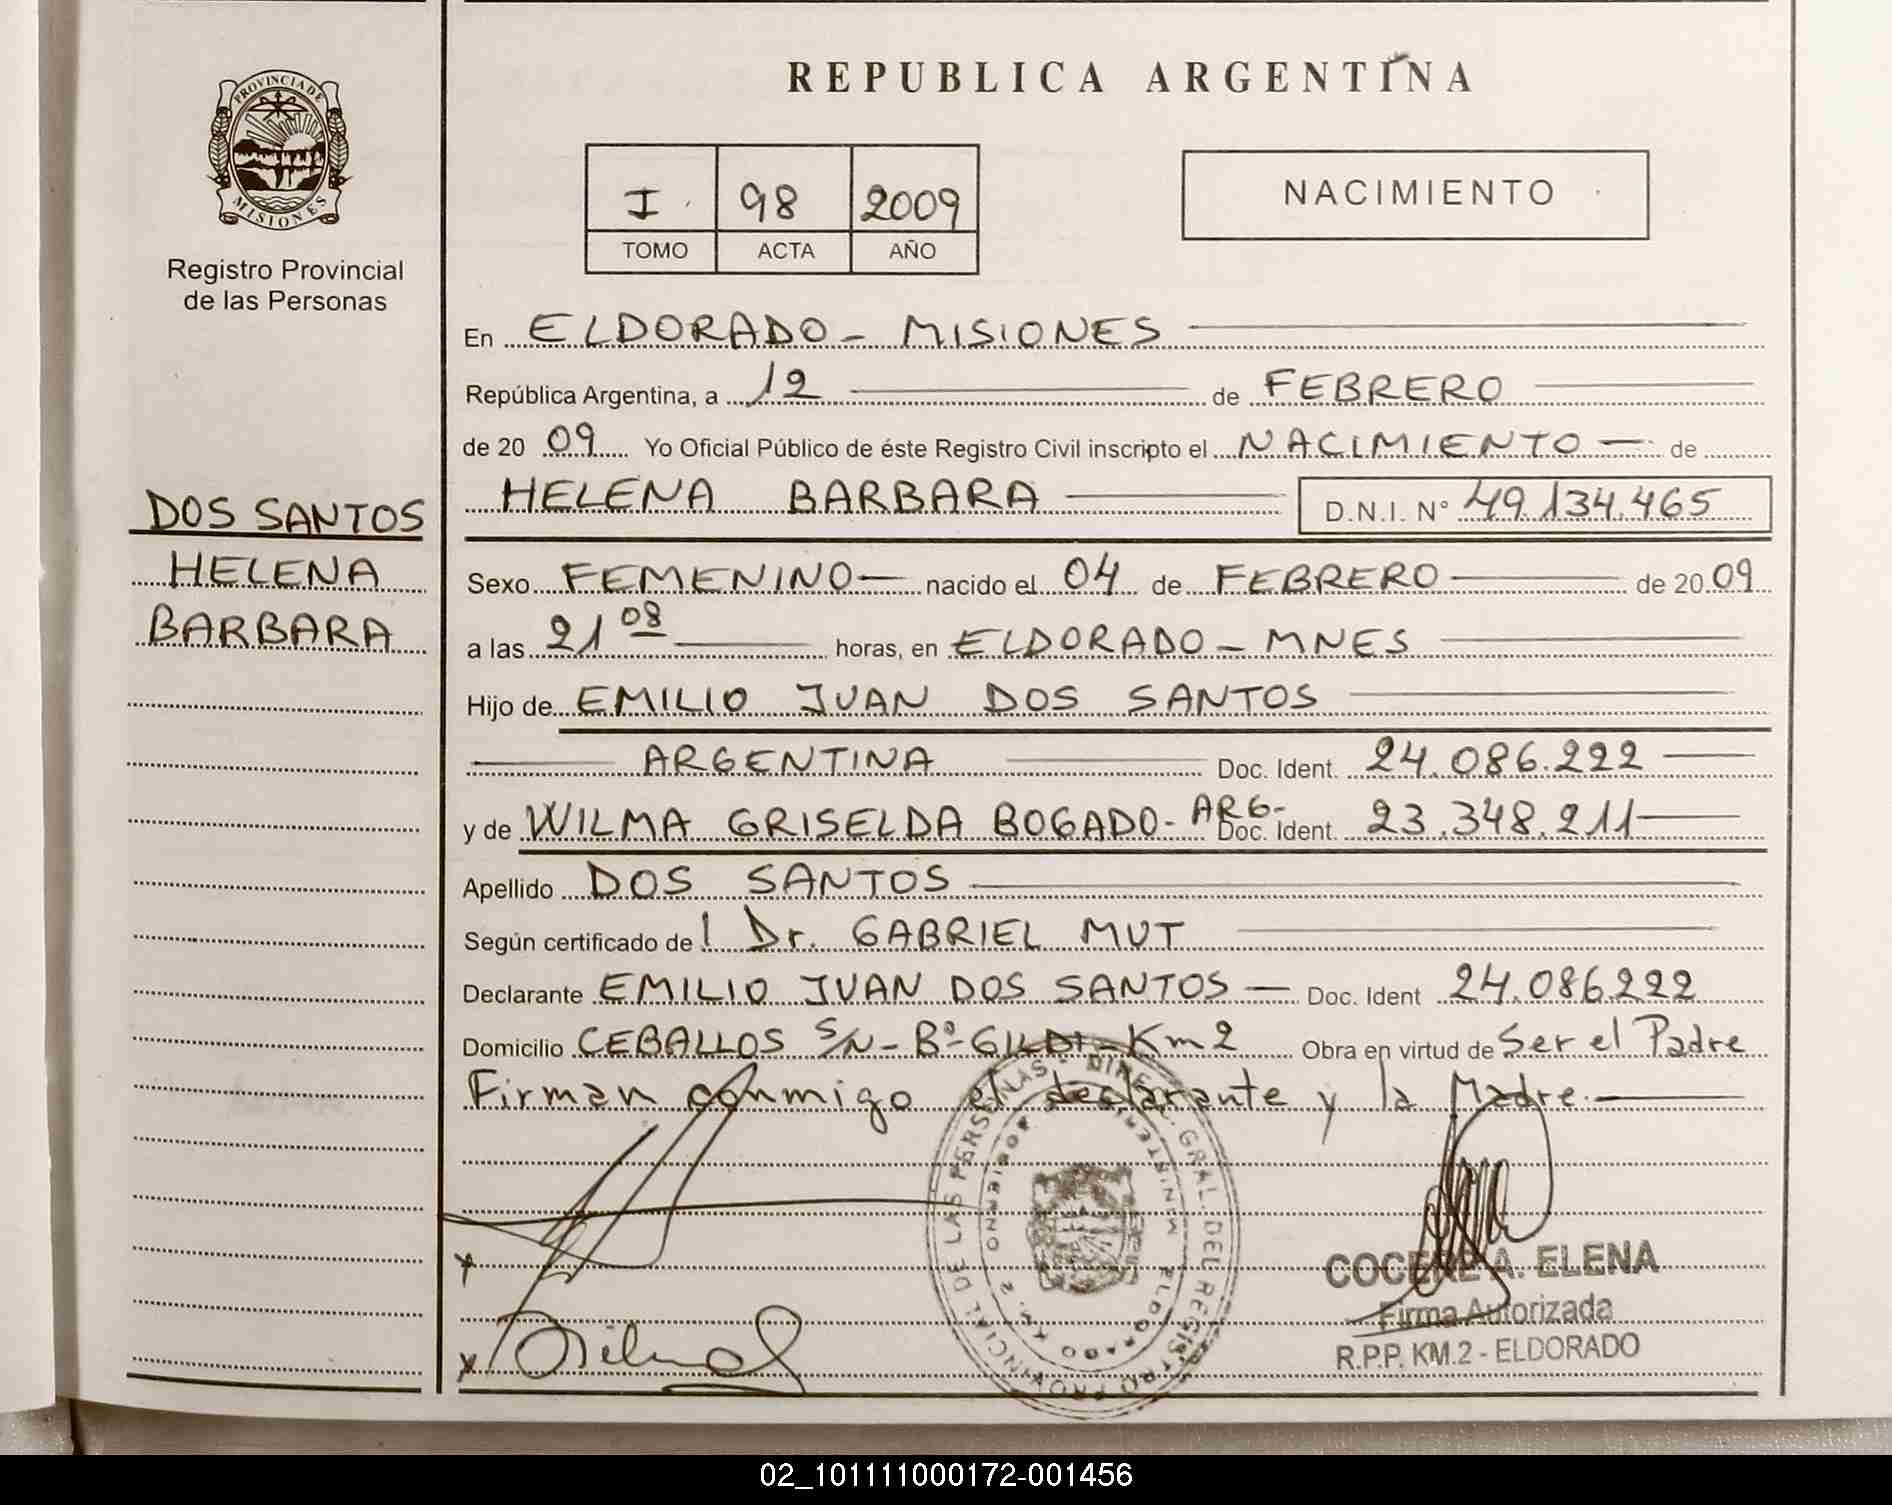 PROVINCIA DE
MISIONES
Registro Provincial
de las Personas
DOS SANTOS
HELENA
BARBARA
REPUBLICA ARGENTINA
I 98 2009
TOMO ACTA AÑO
NACIMIENTO
En ELDORADO - MISIONES
República Argentina, a 12 de FEBRERO
de 20 09 Yo Oficial Público de éste Registro Civil inscripto el NACIMIENTO de
HELENA BARBARA D.N.I. N° 49.134.465
Sexo FEMENINO nacido el 04 de FEBRERO de 20 09
a las 21 08 horas, en ELDORADO - MNES
Hijo de EMILIO JUAN DOS SANTOS
ARGENTINA Doc. Ident. 24.086.222
y de WILMA GRISELDA BOGADO - ARG- Doc. Ident. 23.348.211
Apellido DOS SANTOS
Según certificado de l Dr. GABRIEL MUT
Declarante EMILIO JUAN DOS SANTOS Doc. Ident 24.086222
Domicilio CEBALLOS S/N - Bº Km 2 Obra en virtud de Ser el Padre
Firman conmigo el declarante y la Madre.
DIREC. GRAL. DEL REGISTRO PROVINCIAL DE LAS PERSONAS
ELDORADO KM. 2
A. ELENA
Firma Autorizada
R.P.P. KM.2 - ELDORADO
02_101111000172-001456